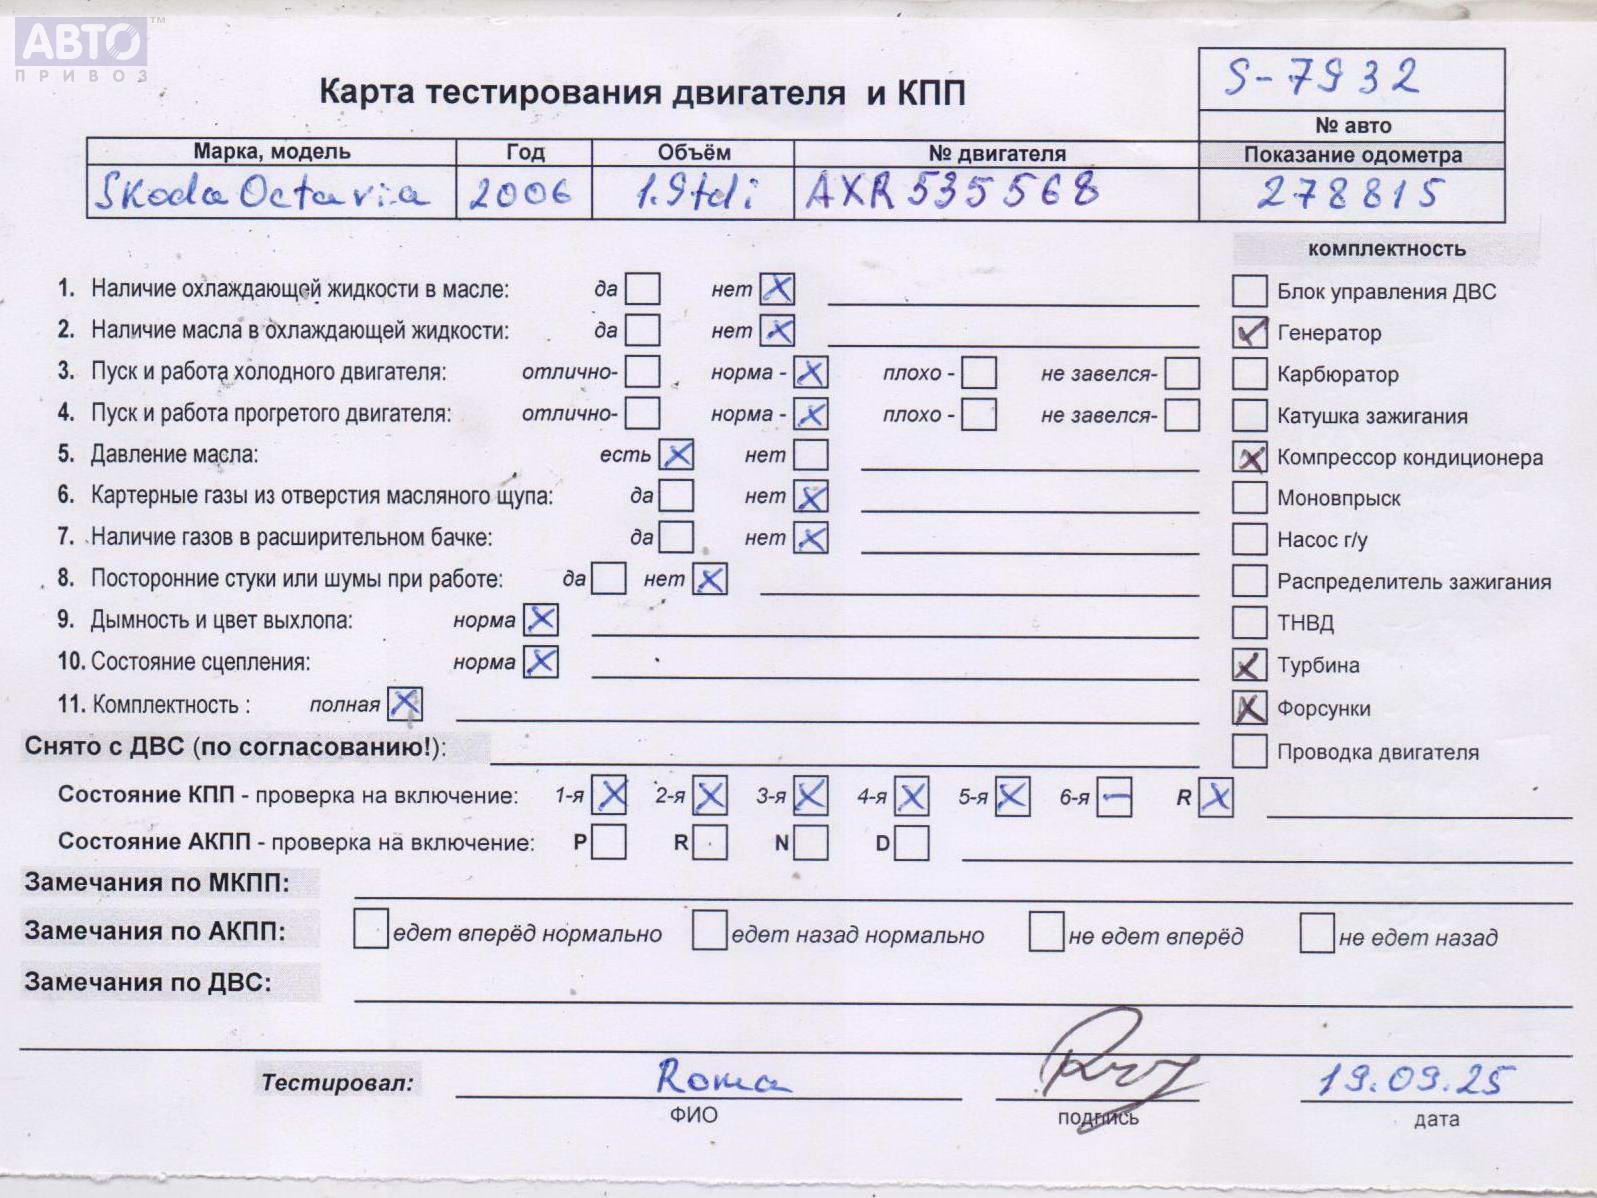 АВТО™
ПРИВОЗ
S-7932
Карта тестирования двигателя и КПП
№ авто
Марка, модель Год Объём № двигателя Показание одометра
Skoda Octavia 2006 1.9tdi AXR535568 278815
комплектность
1. Наличие охлаждающей жидкости в масле: да нет X
Блок управления ДВС
2. Наличие масла в охлаждающей жидкости: да нет X
Генератор
3. Пуск и работа холодного двигателя: отлично- норма - X плохо - не завелся-
Карбюратор
4. Пуск и работа прогретого двигателя: отлично- норма - X плохо - не завелся-
Катушка зажигания
5. Давление масла: есть X нет
Компрессор кондиционера
6. Картерные газы из отверстия масляного щупа: да нет X
Моновпрыск
7. Наличие газов в расширительном бачке: да нет X
Насос г/у
8. Посторонние стуки или шумы при работе: да нет X
Распределитель зажигания
9. Дымность и цвет выхлопа: норма X
ТНВД
10. Состояние сцепления: норма X
Турбина
11. Комплектность : полная X
Форсунки
Снято с ДВС (по согласованию!):
Проводка двигателя
Состояние КПП - проверка на включение: 1-я X 2-я X 3-я X 4-я X 5-я X 6-я – R X
Состояние АКПП - проверка на включение: P R N D
Замечания по МКПП:
Замечания по АКПП: едет вперёд нормально едет назад нормально не едет вперёд не едет назад
Замечания по ДВС:
Тестировал: Roma 19.09.25
ФИО подпись дата